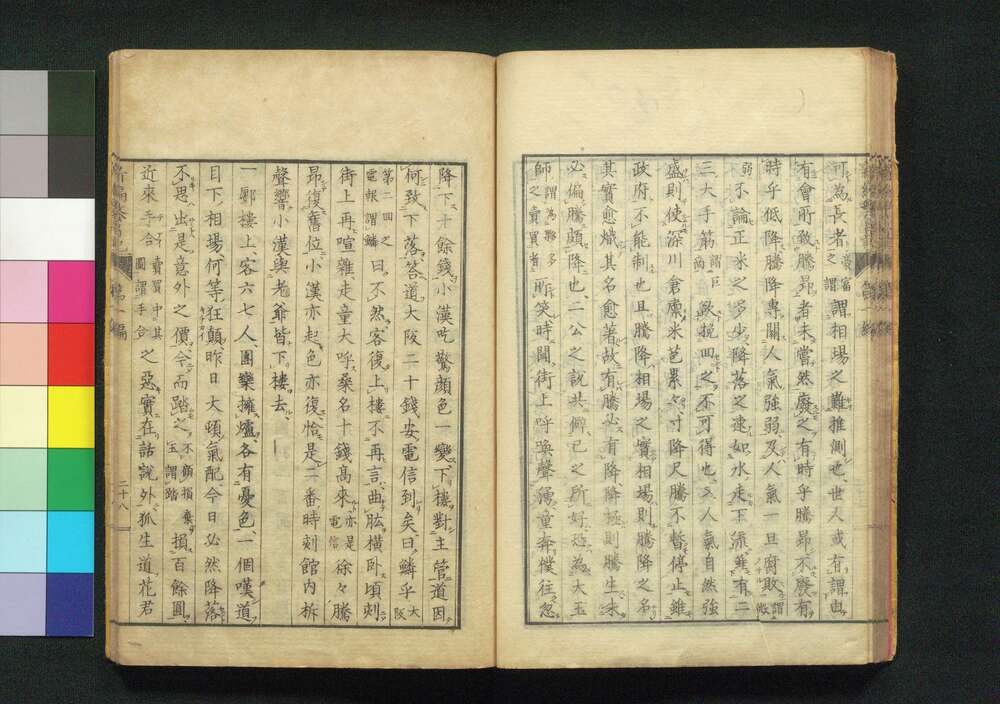 可為長者之謂相場之難推測也世人或有謂由
有會所致騰昂者未嘗然廢之有時乎騰昂不廢有
時乎低降騰降專關人氣強弱及人氣一旦腐敗謂微
弱不論正米之多少降落之速如水走下縱有二
三大手筋謂巨商欲挽回之不可得也又人氣自然強
盛則使深川倉廩米苞累々寸降尺騰不暫停止雖
政府不能制也且騰降相場之實相場則騰降之名
其實愈熾其名愈著故有騰必有降降極則騰生未
必偏騰頗降也二公之說共僻己之所好為大玉
謂為夥多之賣買者師所笑時聞街上呼喚聲傳童奔僕往忽
降下十餘錢小漢吃驚顏色一變下樓對主管道因
何致下落答道大阪二十錢安電信到矣曰鱗乎大阪
第二四之電報謂鱗曰不然客復上樓不再言曲肱橫臥頃刻
街上再喧雜走童大呼桑名十錢高來亦是電信徐々騰
昂復舊位小漢亦起色亦復恰是二番時刻館内柝
聲響小漢與老爺皆下樓去
一鄽樓上客六七人團欒擁爐各有憂色一個嘆道
目下相場何等狂顛昨日大頓氣配今日必然降落
不思出是意外之價今而踏之不顧損棄玉謂踏損百餘圓
近來手合賣買中其圖謂手合之惡實在話說外狐生道花君
二十八